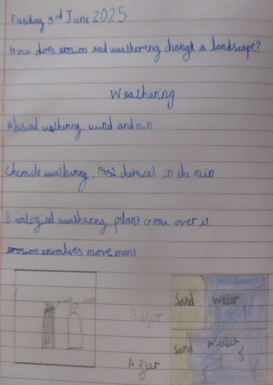 Tusday 3rd June 2025
How does erosion and weathering change a landscape?
Weathering
weathering wind and rain
weathering, chemical in the rain
weatharing, plant grow over it
erosion envolves movement
Sand Water
Befor
Sand Water
After